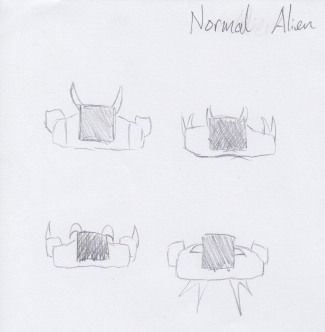 Normal Alien